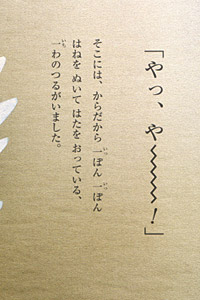 「やっ、や〜〜〜〜！」
そこには、からだから 一ぽん 一ぽん
はねを ぬいて はたを おっている、
一わのつるがいました。